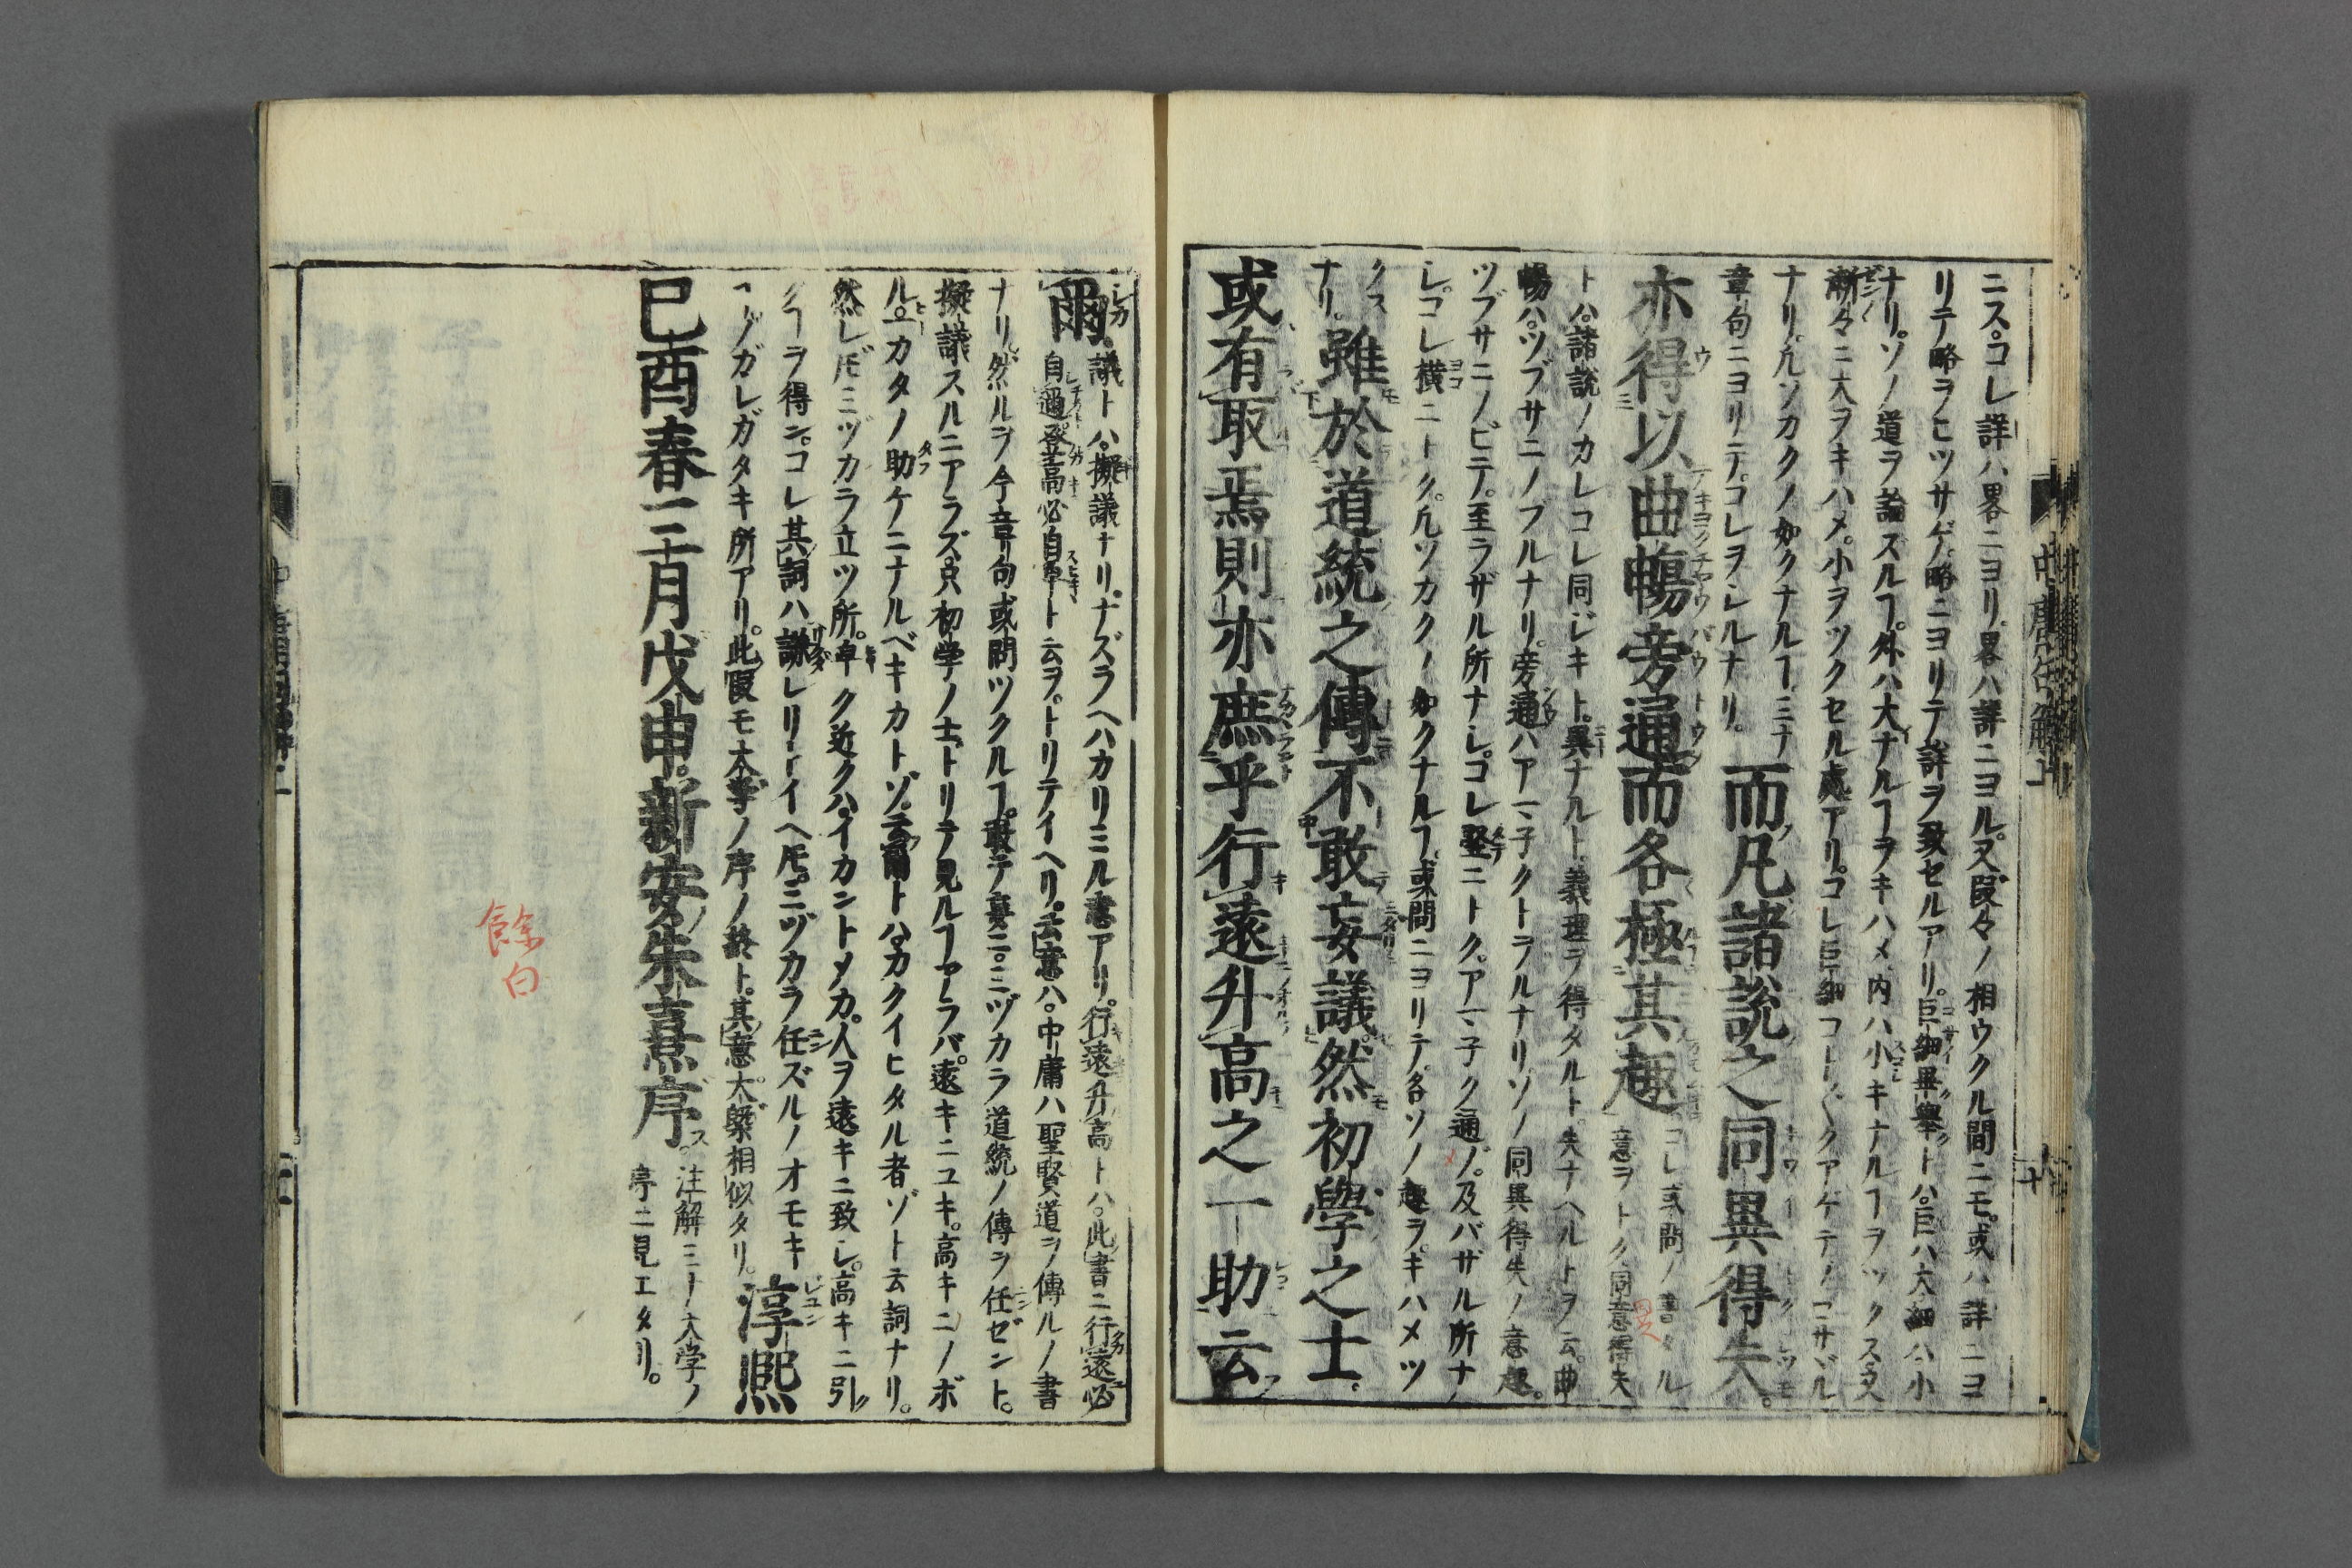 ニス。コレ詳ハ畧ニヨリ。畧ハ詳ニヨル。又段々ノ相ウクル間ニモ。或ハ詳ニヨ
リテ略ヲヒツサゲ。略ニヨリテ詳ヲ致セルアリ。巨細畢舉トハ。巨ハ大細ハ小
ナリ。ソノ道ヲ論スルヿ。外ハ大ナルヿヲキハメ。内ハ小キナルヿヲツクス。又
漸々ニ大ヲキハメ。小ヲツクセル處アリ。コレ巨細コト〱クアゲテノコサヾル
ナリ。凢ソカクノ如クナルヿ。ミナ
章句ニヨリテ。コレヲシルナリ。而凡諸說之同異得失。
亦得以曲暢旁通而各極其趣
コレ或問ノ書タル
意ヲトク。同意得失
異
トハ。諸說ノカレコレ同ジキト。異ナルト。義理ヲ得タルト。失ナヘルトヲ云。曲
暢ハ。ツブサニノブルナリ。旁通ハアマネクトヲルナリ。ソノ同異得失ノ意趣。
ツブサニノビテ。至ラザル所ナシ。コレ竪ニトク。アマネク通ジ。及バザル所ナ
シ。コレ横ニトク。凢ソカクノ如クナルヿ。或問ニヨリテ。各ソノ趣ヲ。キハメツ
クス
ナリ。雖於道統之傳不敢妄議。然初學之士。
或有取焉則亦庶乎行遠升高之一助云
爾。議トハ。擬議ナリ。ナズラヘハカリミル意アリ。行遠升高トハ。此書ニ行遠必
自邇。登高必自卑ト云ヲ。トリテイヘリ。云意ハ。中庸ハ聖賢道ヲ傳ルノ書
ナリ。然ルヲ今章句或問ツクルヿ。敢テ妄ニ。ミヅカラ道統ノ傳ヲ任ゼント。
擬議スルニアラズ。只初学ノ士トリテ見ルヿアラバ。遠キニユキ。高キニノボ
ル。一カタノ助ケニナルベキカトゾ。云爾トハ。カクイヒタル者ゾト云詞ナリ。
然レ𪜈ミヅカラ立ツ所。卑ク近クハ。イカントメカ。人ヲ遠キニ致シ。高キニ引
クヿヲ得ン。コレ其詞ハ謙レリトイヘ𪜈。ミヅカラ任ズルノオモキ
ヿ。ノガレガタキ所アリ。此段モ大学ノ序ノ終ト。其意大槩相似タリ。淳熙
己酉春三月戊申。新安朱熹序。
注解ミナ大学ノ
序ニ見エタリ。
餘白